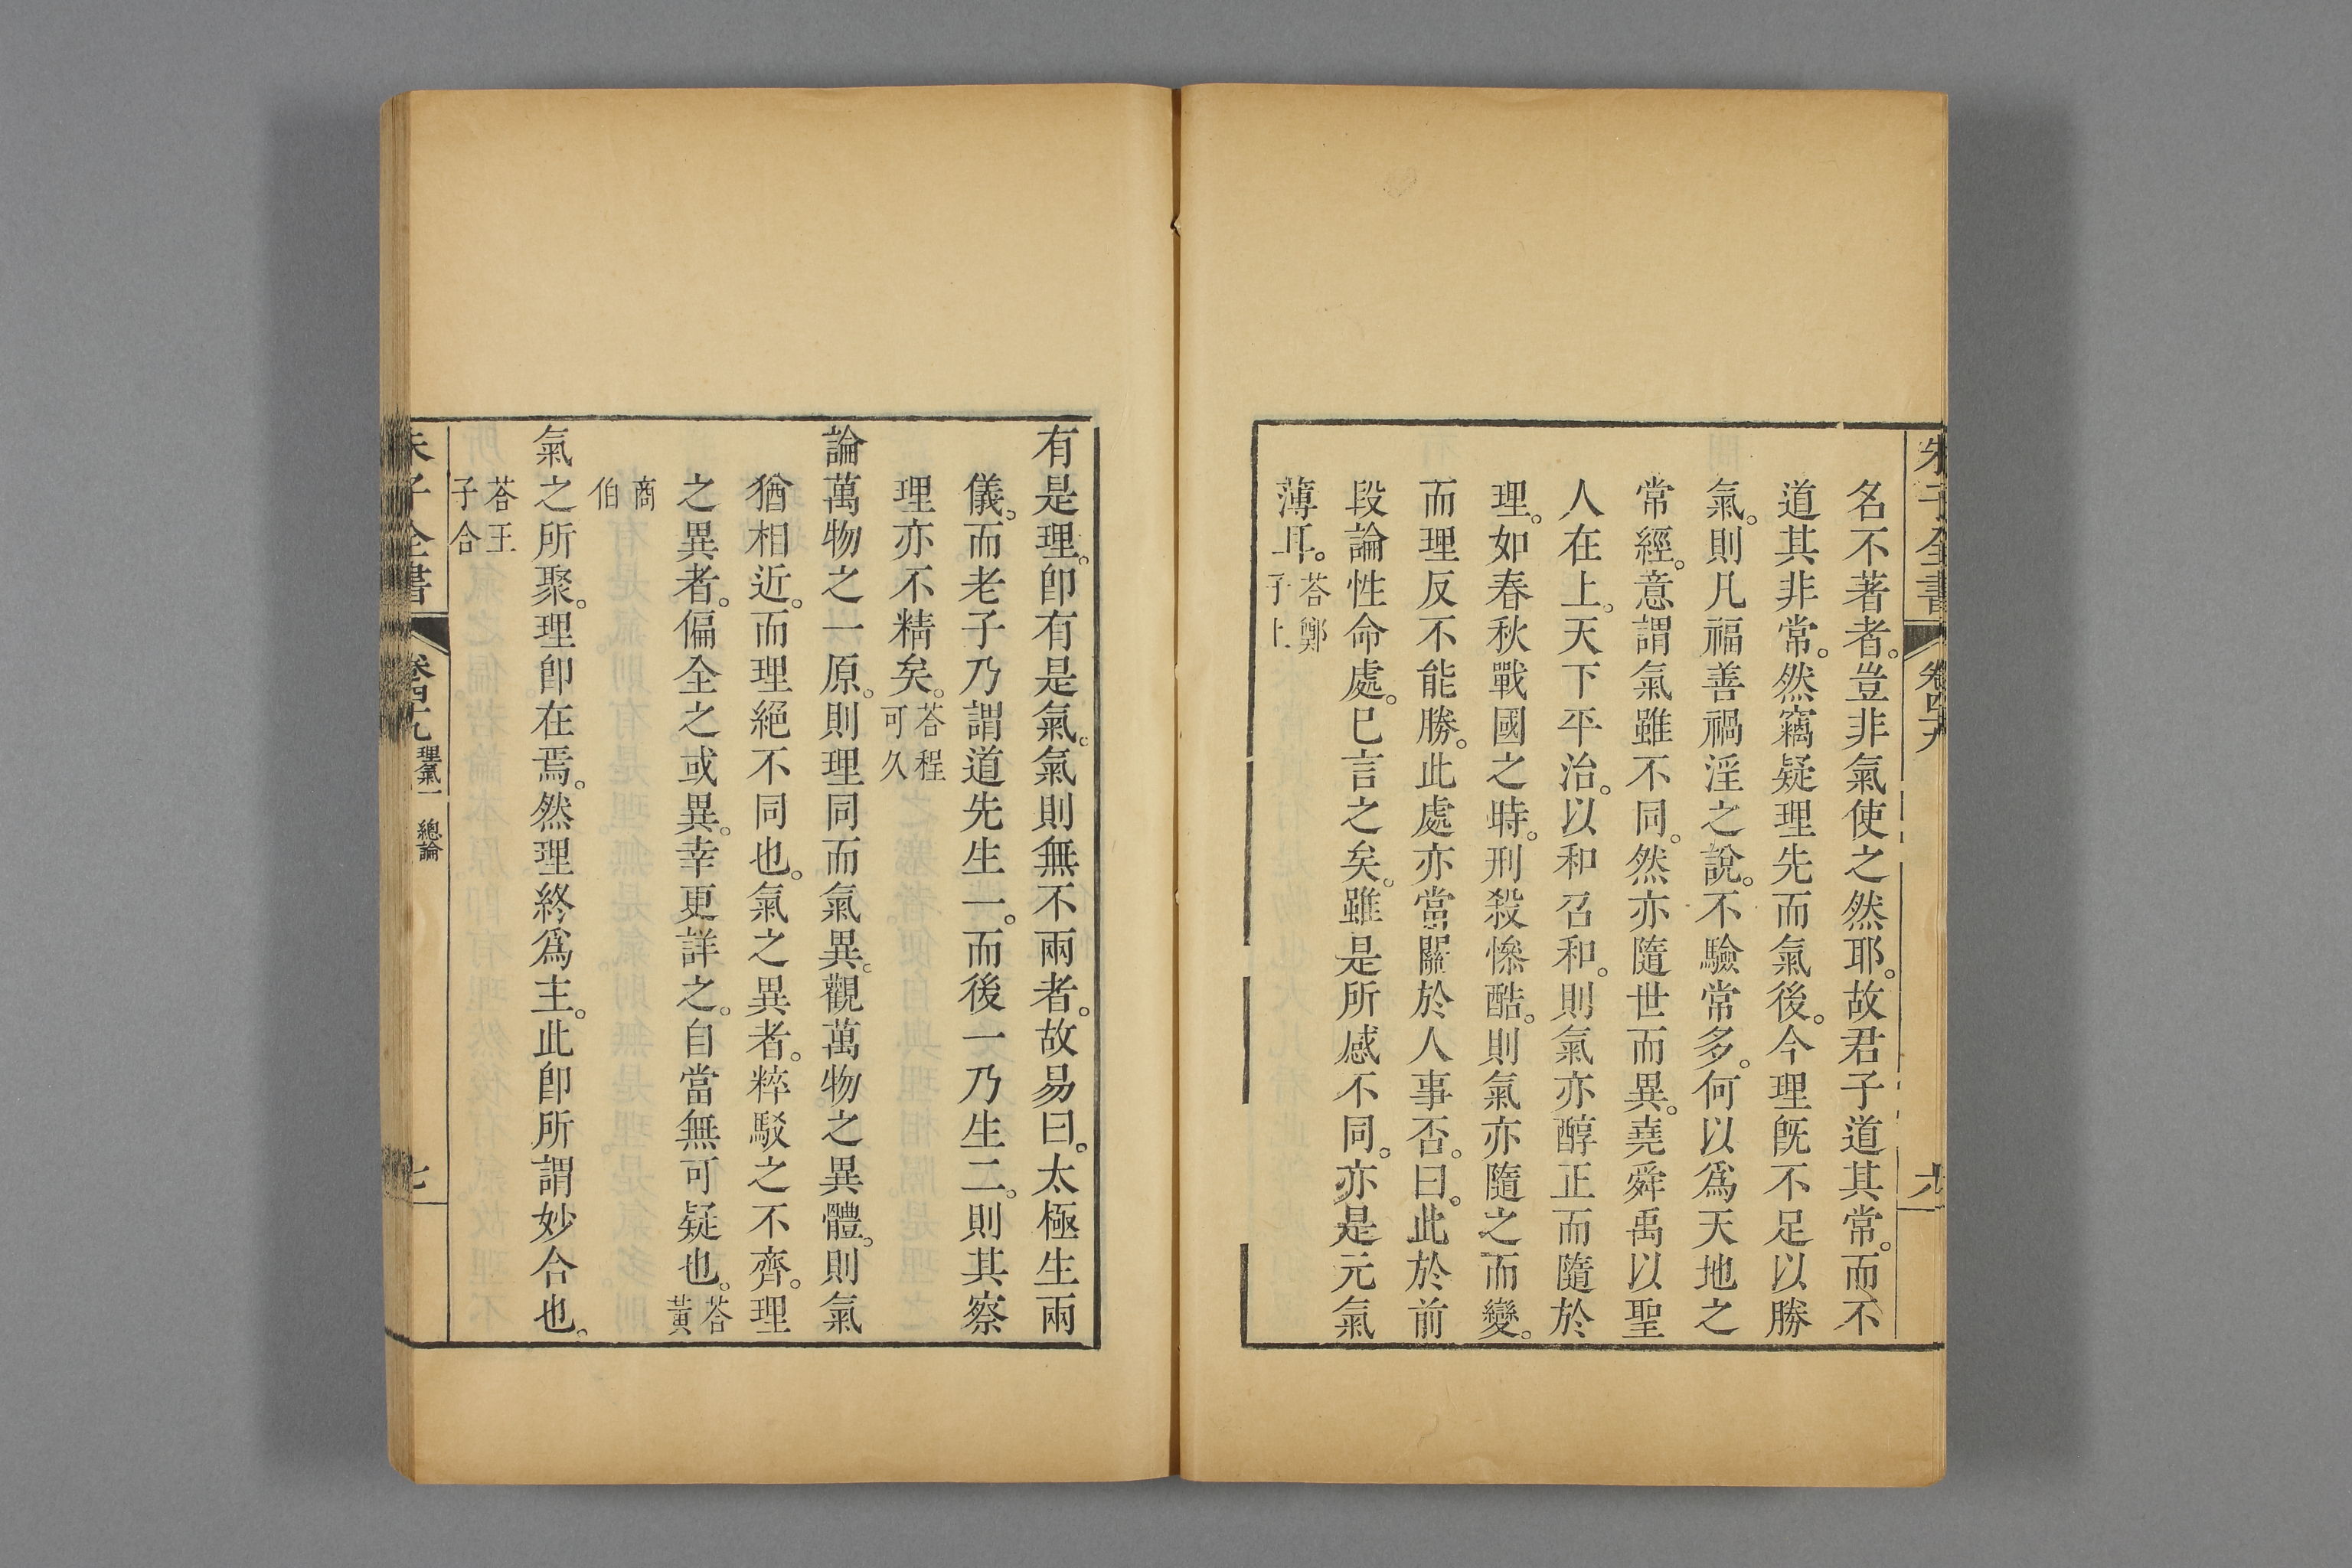 朱子全書 卷四十九
名不著者。豈非氣使之然耶。故君子道其常。而不
道其非常。然竊疑理先而氣後。今理旣不足以勝
氣。則凡福善禍淫之說。不驗常多。何以爲天地之
常經。意謂氣雖不同。然亦隨世而異。堯舜禹以聖
人在上。天下平治。以和召和。則氣亦醇正而隨於
理。如春秋戰國之時。刑殺慘酷。則氣亦隨之而變。
而理反不能勝。此處亦當關於人事否。曰。此於前
段論性命處。已言之矣。雖是所感不同。亦是元氣
薄耳。答鄭子上
有是理。卽有是氣。氣則無不兩者。故易曰。太極生兩
儀。而老子乃謂道先生一。而後一乃生二。則其察
理亦不精矣。答程可久
論萬物之一原。則理同而氣異。觀萬物之異體。則氣
猶相近。而理絕不同也。氣之異者。粹駁之不齊。理
之異者。偏全之或異。幸更詳之。自當無可疑也。答黃
商伯
氣之所聚。理卽在焉。然理終爲主。此卽所謂妙合也。
答王子合
朱子全書 卷四十九 理氣一 總論 七